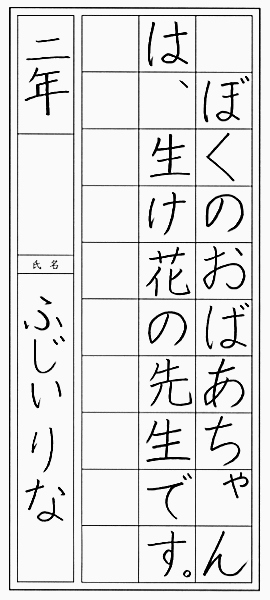 ぼくのおばあちゃん
は、生け花の先生です。
二年
氏名
ふじいりな